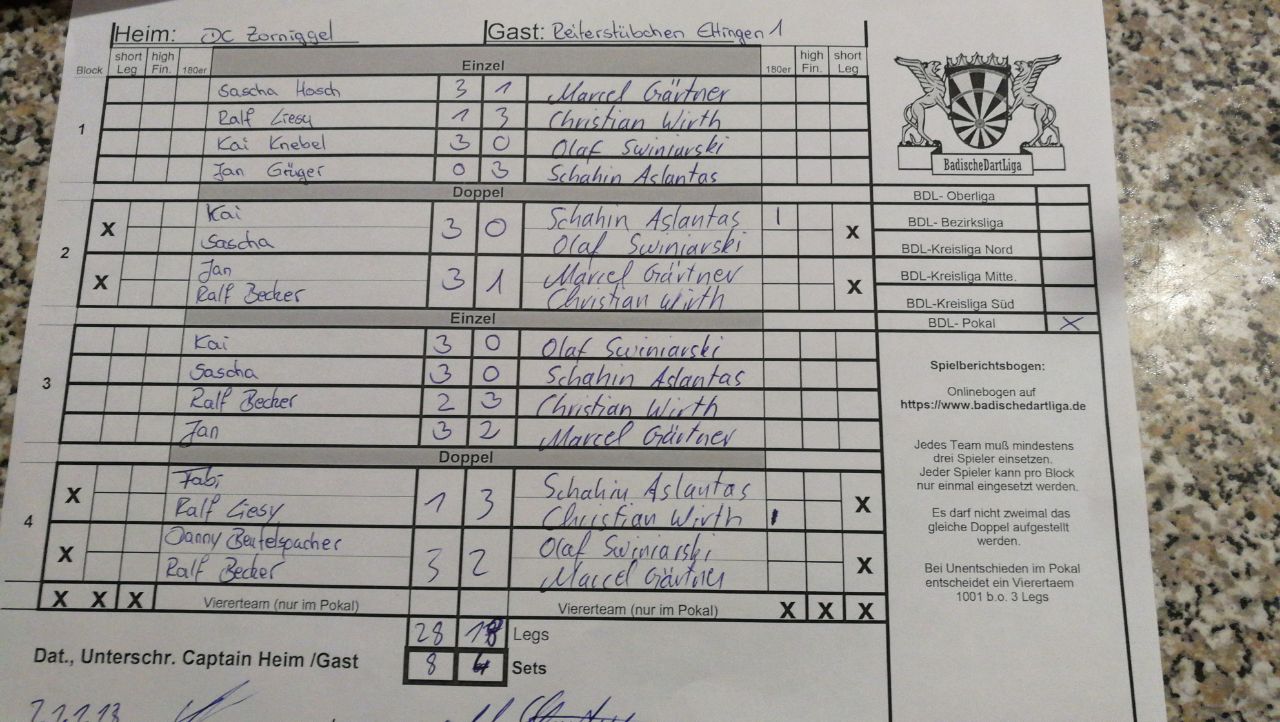 Heim: DC Zorniggel Gast: Reiterstübchen Ettingen 1
Block short Leg high Fin. 180er Einzel 180er high Fin. short Leg
1
Sascha Hosch 3 1 Marcel Gärtner
Ralf Liesy 1 3 Christian Wirth
Kai Knebel 3 0 Olaf Swiniarski
Jan Grüger 0 3 Schahin Aslantas
Doppel
2
X Kai 3 0 Schahin Aslantas 1 X
Sascha Olaf Swiniarski
X Jan 3 1 Marcel Gärtner X
Ralf Becker Christian Wirth
Einzel
3
Kai 3 0 Olaf Swiniarski
Sascha 3 0 Schahin Aslantas
Ralf Becker 2 3 Christian Wirth
Jan 3 2 Marcel Gärtner
Doppel
4
X Fabi 1 3 Schahin Aslantas X
Ralf Liesy Christian Wirth 1
X Danny Beutelspacher 3 2 Olaf Swiniarski X
Ralf Becker Marcel Gärtner
X X X Viererteam (nur im Pokal) Viererteam (nur im Pokal) X X X
28 18 Legs
Dat., Unterschr. Captain Heim /Gast 8 4 Sets
BadischeDartLiga
BDL- Oberliga
BDL- Bezirksliga
BDL-Kreisliga Nord
BDL-Kreisliga Mitte.
BDL-Kreisliga Süd
BDL- Pokal X
Spielberichtsbogen:
Onlinebogen auf
https://www.badischedartliga.de
Jedes Team muß mindestens
drei Spieler einsetzen.
Jeder Spieler kann pro Block
nur einmal eingesetzt werden.
Es darf nicht zweimal das
gleiche Doppel aufgestellt
werden.
Bei Unentschieden im Pokal
entscheidet ein Vierertaem
1001 b.o. 3 Legs